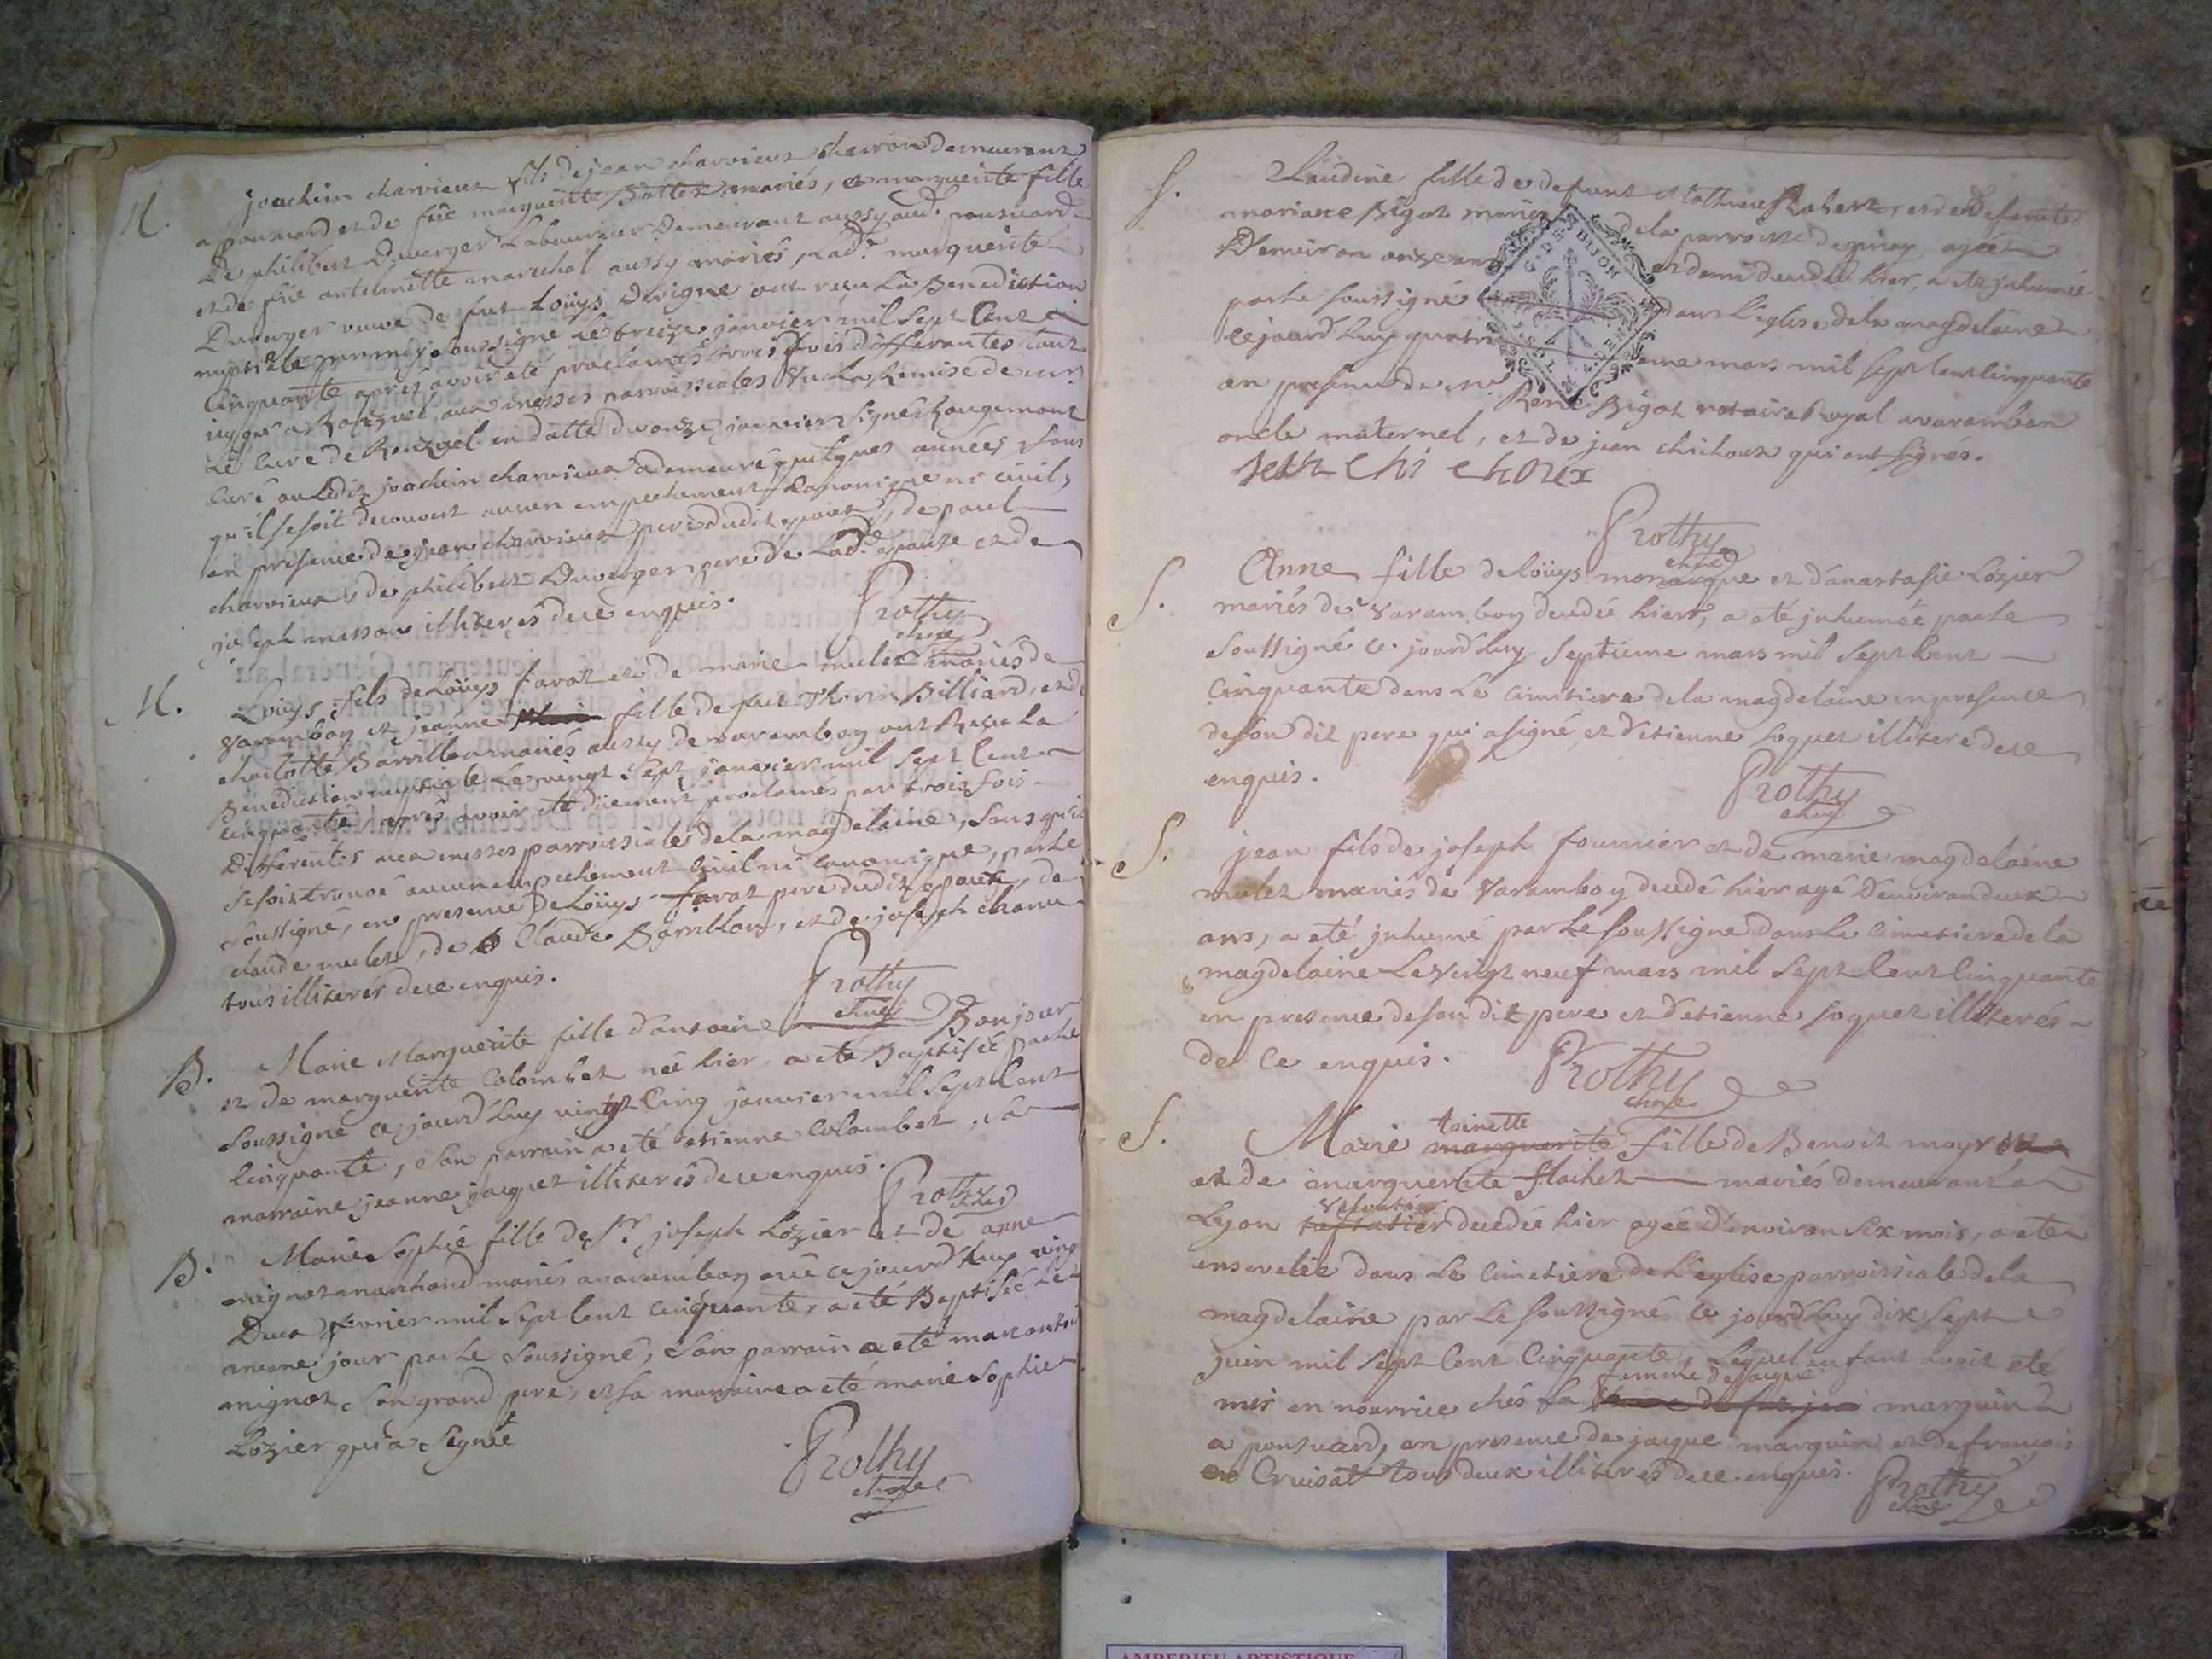 M. joachim charvieux fils de jean charvieux charron demeurant
a ponsuard et de fue marguerite Battet mariés, et marguerite fille
De philibert Duverger Laboureur Demeurant aussy aud.t ponsuard
et de fue antoinette marechal aussy mariés, lad.e marguerite
Duverger veuve de fut Loüys Derigne ont reçu La Benediction
nuptiale par moy soussigné Le treize janvier mil sept Cent
Cinquante apres avoir été proclamés trois fois differantes tant
icy que a aux messes parroissiales vu La Remise de mr
Le Curé de en datte du onze janvier signé Rougemont
Curé ou Ledit joachim charvieux a demeuré quelques années sans
qu'il se soit decouvert aucun empechement Canonique ni civil,
en presence de jean charvieux pere dudit epoux, de paul
charvieux, de philibert Duverger pere de Lad.e epouse et de
joseph masson illiterés de ce enquis.
Prothy
curé
M. Loüys fils de Loüys favat et de marie mulet mariés de
varambon et jeanne fille de fut Thorin Billiard, et de
charlotte Barrillon mariés aussy de varambon ont Reçu La
Benediction nuptiale Le vingt sept janvier mil sept Cent
cinquante, apres avoir été düement proclamés par trois fois
Differentes aux messes parroissiales de la magdelaine, sans qu'il
se soit trouvé aucun empechement Civil ni canonique, par le
soussigné, en presence De Loüys favat pere dudit epoux, de
claude mulet, de Claude Barrillon, et de joseph chanu
tous illiterés de ce enquis.
Prothy
curé
B. Marie Marguerite fille d'antoine Bonjour
et de marguerite Colombet née hier a eté Baptisée par le
soussigné ce jourd'huy vingt Cinq janvier mil sept Cent
Cinquante, son parrain a eté etienne Colombet, sa
marraine jeanne jacquet illiterés de ce enquis.
Prothy
curé
B. Marie Sophie fille de Sr. joseph Lozier et de anne
mignot marchand mariés a varambon née ce jourd'huy vingt
Deux fevrier mil sept Cent Cinquante, a eté Baptisée Le
meme jour par Le soussigné, son parrain a eté
mignot son grand pere, et sa marraine a eté marie sophie
Lozier qui a signée
Prothy
curé
S. Claudine fille de defunt Matthieu Robert, et de defunte
mariane Bigot mariés de la parroisse de agée
D'environ onze ans et demi decedée hier, a eté inhumée
par le soussigné dans l'eglise de la magdelaine
ce jourd'huy quatrieme mars mil sept Cent Cinquante
en presence de mre René Bigot notaire Royal a varambon
oncle maternel, et de jean chichoux qui ont signés.
G. DE DIJON
Jean Chi choux
Prothy
curé
S. Anne fille de Loüys monarque et d'anastasie Lozier
mariés de varambon decedée hier, a eté inhumée par le
soussigné ce jourd'huy septieme mars mil sept Cent
Cinquante dans Le Cimetiere de la magdelaine en presence
de son dit pere qui a signé et d'etienne soquet illiteré de ce
enquis.
Prothy
curé
S. jean fils de joseph fournier et de marie magdelaine
mulet mariés de varambon decedé hier agé D'environ deux
ans, a eté inhumé par Le soussigné dans Le Cimetiere de la
magdelaine Le vingt neuf mars mil sept Cent Cinquante
en presence de son dit pere et d'etienne soquet illiterés
de Ce enquis.
Prothy
curé
S. Marie toinette marguerite fille de Benoit
et de marguerite flachet mariés demeurant a
Lyon decedée hier agée D'environ six mois, a eté
ensevelie dans Le Cimetiere de L'eglise parroissiale de la
magdelaine par Le soussigné ce jourd'huy dix sept
juin mil sept Cent Cinquante, Lequel enfant avoit eté
mis en nourrice chés La femme de jacque marguin
a ponsuard, en presence de jacque marguin et de francois
Cruisat tous deux illiterés de ce enquis.
Prothy
curé
AMBERIEU ARTISTIQUE